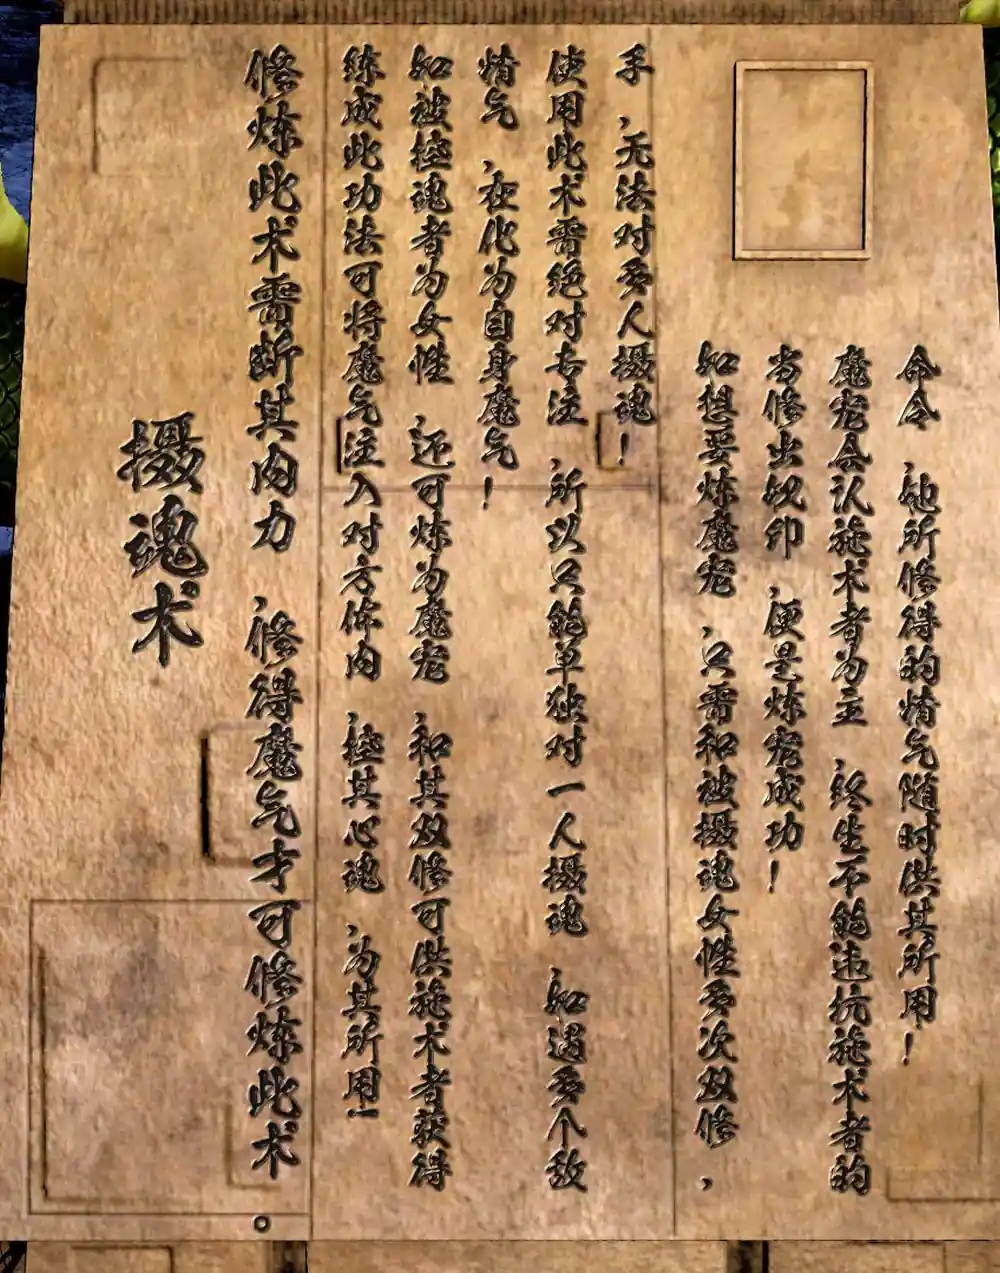 摄魂术
修炼此术需断其内力，修得魔气才可修炼此术。
练成此功法可将魔气注入对方体内，控其心魂，为其所用！
如被控魂者为女性，还可炼为魔宠，和其双修可供施术者获得
情气，在化为自身魔气！
使用此术需绝对专注，所以只能单独对一人摄魂，如遇多个敌
手，无法对多人摄魂！
如想要炼魔宠，只需和被摄魂女性多次双修，
当修出奴印，便是炼宠成功！
魔宠会认施术者为主，终生不能违抗施术者的
命令，她所修得的情气随时供其所用！